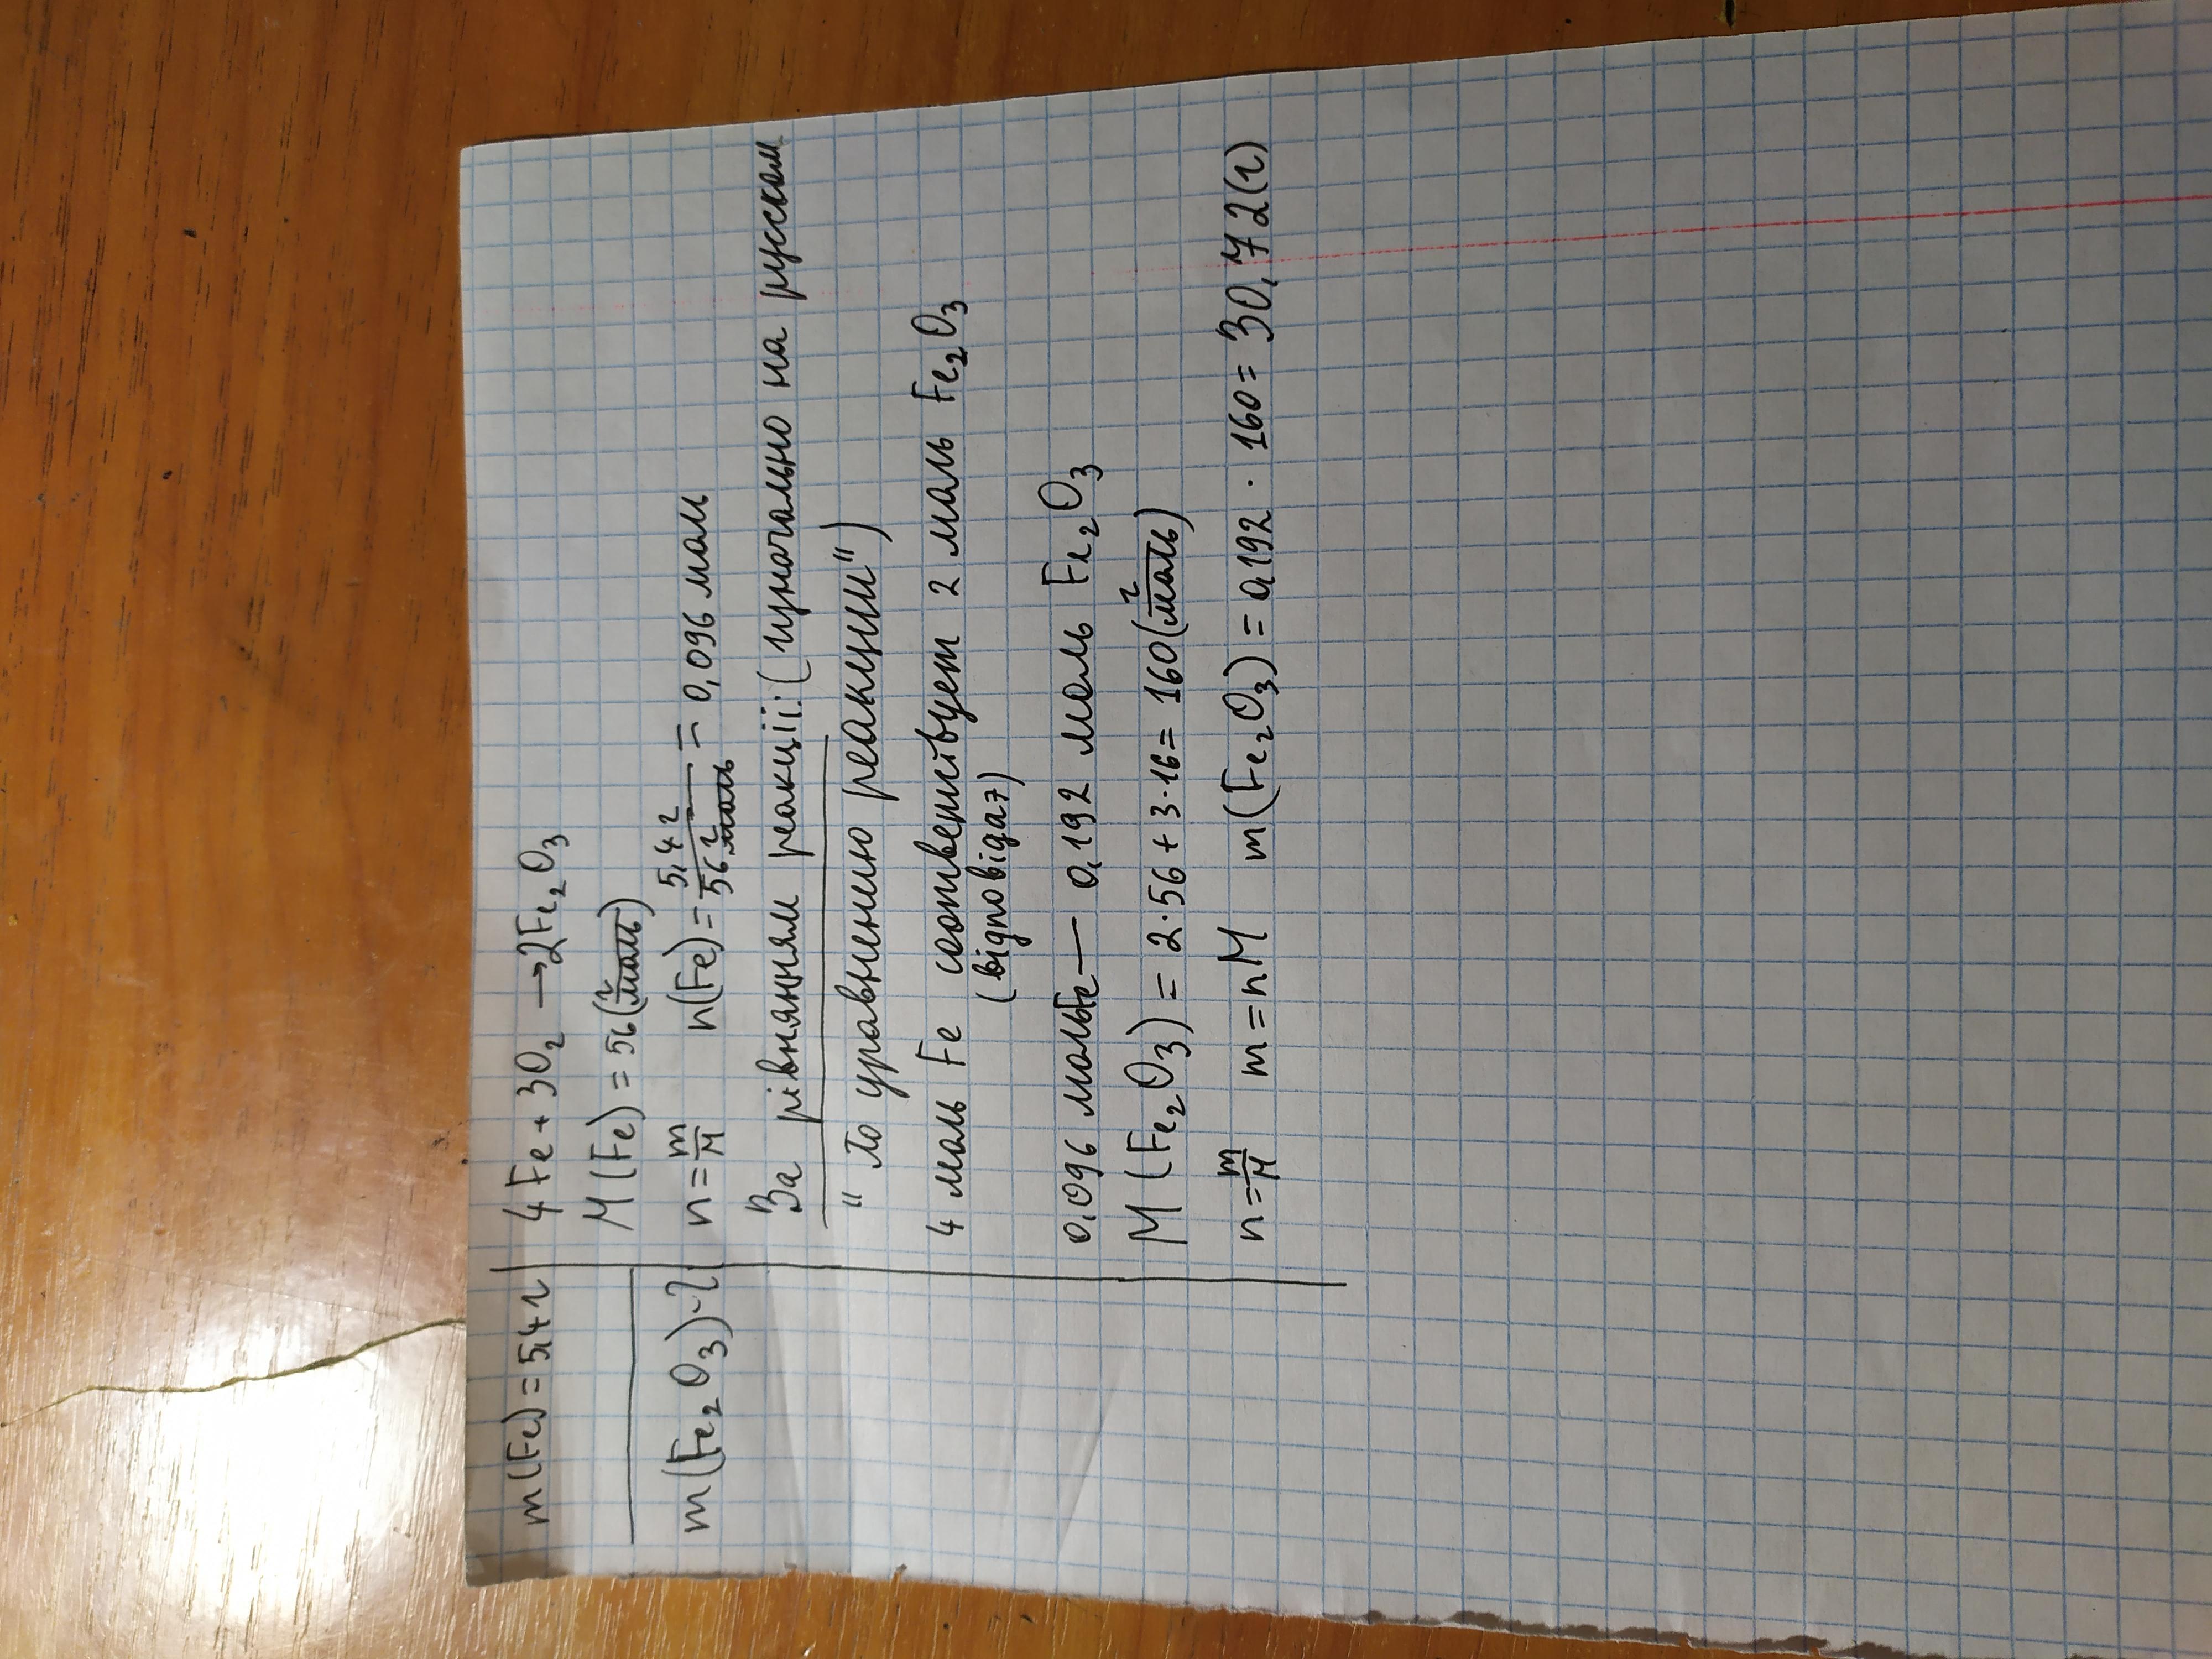 m(Fe)=5,4г
m(Fe₂O₃)-?
4Fe+3O₂→2Fe₂O₃
M(Fe)=56(г/моль)
n=m/M n(Fe)=5,4г/56г/моль=0,096 моль
За рівнянням реакції:(изначально на русском
"По уравнению реакции")
4 моль Fe соответствует 2 моль Fe₂O₃
(відповідає)
0,096 мольFe— 0,192 моль Fe₂O₃
M(Fe₂O₃)=2·56+3·16=160(г/моль)
n=m/M m=nM m(Fe₂O₃)=0,192·160=30,72(г)